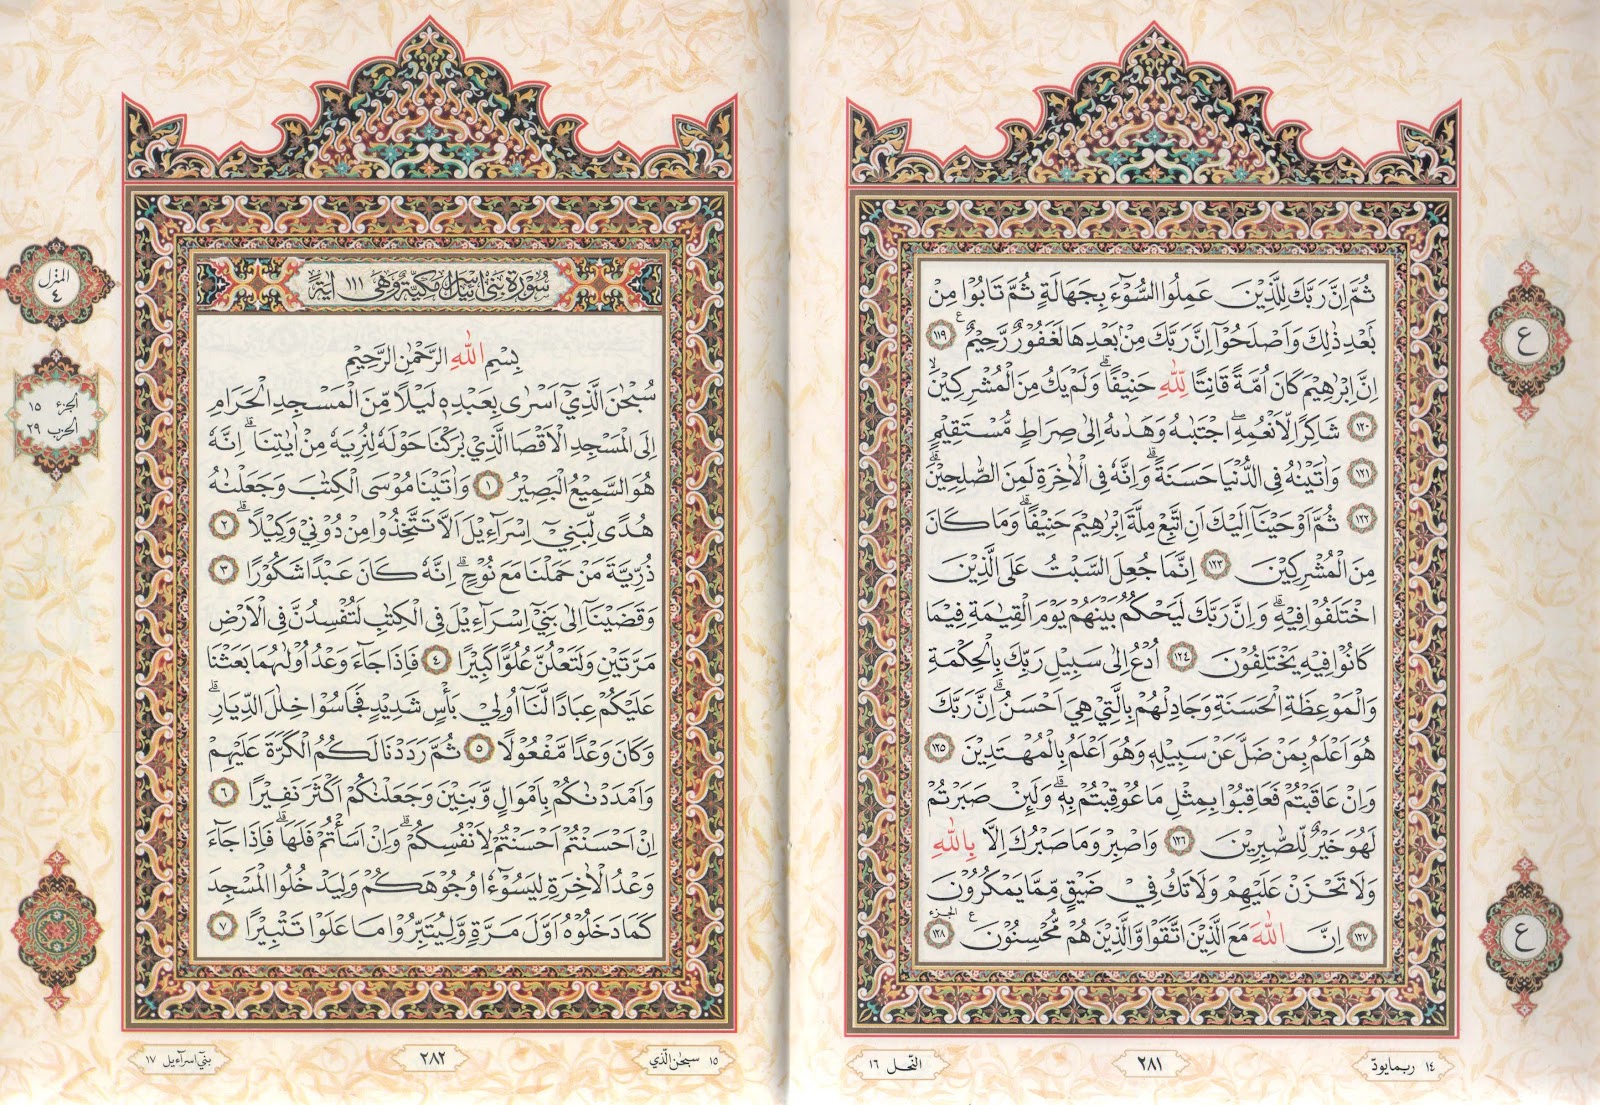 ثُمَّ اِنَّ رَبَّكَ لِلَّذِيْنَ عَمِلُوا السُّوْٓءَ بِجَهَالَةٍ ثُمَّ تَابُوْا مِنْ
بَعْدِ ذٰلِكَ وَاَصْلَحُوْٓا اِنَّ رَبَّكَ مِنْ بَعْدِهَا لَغَفُوْرٌ رَّحِيْمٌ ࣖ ١١٩
اِنَّ اِبْرٰهِيْمَ كَانَ اُمَّةً قَانِتًا لِّلّٰهِ حَنِيْفًاۗ وَلَمْ يَكُ مِنَ الْمُشْرِكِيْنَۙ
١٢٠ شَاكِرًا لِّاَنْعُمِهٖۗ اِجْتَبٰىهُ وَهَدٰىهُ اِلٰى صِرَاطٍ مُّسْتَقِيْمٍ
١٢١ وَاٰتَيْنٰهُ فِى الدُّنْيَا حَسَنَةًۗ وَاِنَّهٗ فِى الْاٰخِرَةِ لَمِنَ الصّٰلِحِيْنَۗ
١٢٢ ثُمَّ اَوْحَيْنَآ اِلَيْكَ اَنِ اتَّبِعْ مِلَّةَ اِبْرٰهِيْمَ حَنِيْفًاۗ وَمَا كَانَ
مِنَ الْمُشْرِكِيْنَ ١٢٣ اِنَّمَا جُعِلَ السَّبْتُ عَلَى الَّذِيْنَ
اخْتَلَفُوْا فِيْهِۗ وَاِنَّ رَبَّكَ لَيَحْكُمُ بَيْنَهُمْ يَوْمَ الْقِيٰمَةِ فِيْمَا
كَانُوْا فِيْهِ يَخْتَلِفُوْنَ ١٢٤ اُدْعُ اِلٰى سَبِيْلِ رَبِّكَ بِالْحِكْمَةِ
وَالْمَوْعِظَةِ الْحَسَنَةِ وَجَادِلْهُمْ بِالَّتِيْ هِيَ اَحْسَنُۗ اِنَّ رَبَّكَ
هُوَ اَعْلَمُ بِمَنْ ضَلَّ عَنْ سَبِيْلِهٖ وَهُوَ اَعْلَمُ بِالْمُهْتَدِيْنَ ١٢٥
وَاِنْ عَاقَبْتُمْ فَعَاقِبُوْا بِمِثْلِ مَا عُوْقِبْتُمْ بِهٖۗ وَلَىِٕنْ صَبَرْتُمْ
لَهُوَ خَيْرٌ لِّلصّٰبِرِيْنَ ١٢٦ وَاصْبِرْ وَمَا صَبْرُكَ اِلَّا بِاللّٰهِ
وَلَا تَحْزَنْ عَلَيْهِمْ وَلَا تَكُ فِيْ ضَيْقٍ مِّمَّا يَمْكُرُوْنَ
١٢٧ اِنَّ اللّٰهَ مَعَ الَّذِيْنَ اتَّقَوْا وَّالَّذِيْنَ هُمْ مُّحْسِنُوْنَ ࣖ ١٢٨ الجزء
ع
ع
١٤ ربمايودّ
٢٨١
النّحل ١٦
سُوْرَةُ بَنِيْٓ اِسْرَآءِيْلَ مَكِّيَّةٌ وَّهِيَ ١١١ اٰيَةً
بِسْمِ اللّٰهِ الرَّحْمٰنِ الرَّحِيْمِ
سُبْحٰنَ الَّذِيْٓ اَسْرٰى بِعَبْدِهٖ لَيْلًا مِّنَ الْمَسْجِدِ الْحَرَامِ
اِلَى الْمَسْجِدِ الْاَقْصَا الَّذِيْ بٰرَكْنَا حَوْلَهٗ لِنُرِيَهٗ مِنْ اٰيٰتِنَاۗ اِنَّهٗ
هُوَ السَّمِيْعُ الْبَصِيْرُ ١ وَاٰتَيْنَا مُوْسَى الْكِتٰبَ وَجَعَلْنٰهُ
هُدًى لِّبَنِيْٓ اِسْرَاۤءِيْلَ اَلَّا تَتَّخِذُوْا مِنْ دُوْنِيْ وَكِيْلًاۗ ٢
ذُرِّيَّةَ مَنْ حَمَلْنَا مَعَ نُوْحٍۗ اِنَّهٗ كَانَ عَبْدًا شَكُوْرًا ٣
وَقَضَيْنَآ اِلٰى بَنِيْٓ اِسْرَاۤءِيْلَ فِى الْكِتٰبِ لَتُفْسِدُنَّ فِى الْاَرْضِ
مَرَّتَيْنِ وَلَتَعْلُنَّ عُلُوًّا كَبِيْرًا ٤ فَاِذَا جَاۤءَ وَعْدُ اُوْلٰىهُمَا بَعَثْنَا
عَلَيْكُمْ عِبَادًا لَّنَآ اُولِيْ بَأْسٍ شَدِيْدٍ فَجَاسُوْا خِلٰلَ الدِّيَارِۗ
وَكَانَ وَعْدًا مَّفْعُوْلًا ٥ ثُمَّ رَدَدْنَا لَكُمُ الْكَرَّةَ عَلَيْهِمْ
وَاَمْدَدْنٰكُمْ بِاَمْوَالٍ وَّبَنِيْنَ وَجَعَلْنٰكُمْ اَكْثَرَ نَفِيْرًا ٦
اِنْ اَحْسَنْتُمْ اَحْسَنْتُمْ لِاَنْفُسِكُمْۗ وَاِنْ اَسَأْتُمْ فَلَهَاۗ فَاِذَا جَاۤءَ
وَعْدُ الْاٰخِرَةِ لِيَسُوْۤءٗا وُجُوْهَكُمْ وَلِيَدْخُلُوا الْمَسْجِدَ
كَمَا دَخَلُوْهُ اَوَّلَ مَرَّةٍ وَّلِيُتَبِّرُوْا مَا عَلَوْا تَتْبِيْرًا ٧
المنزل
٤
الجزء ١٥
الحزب ٢٩
١٥ سبحٰن الّذي
٢٨٢
بنيٓ اسرآءيل ١٧